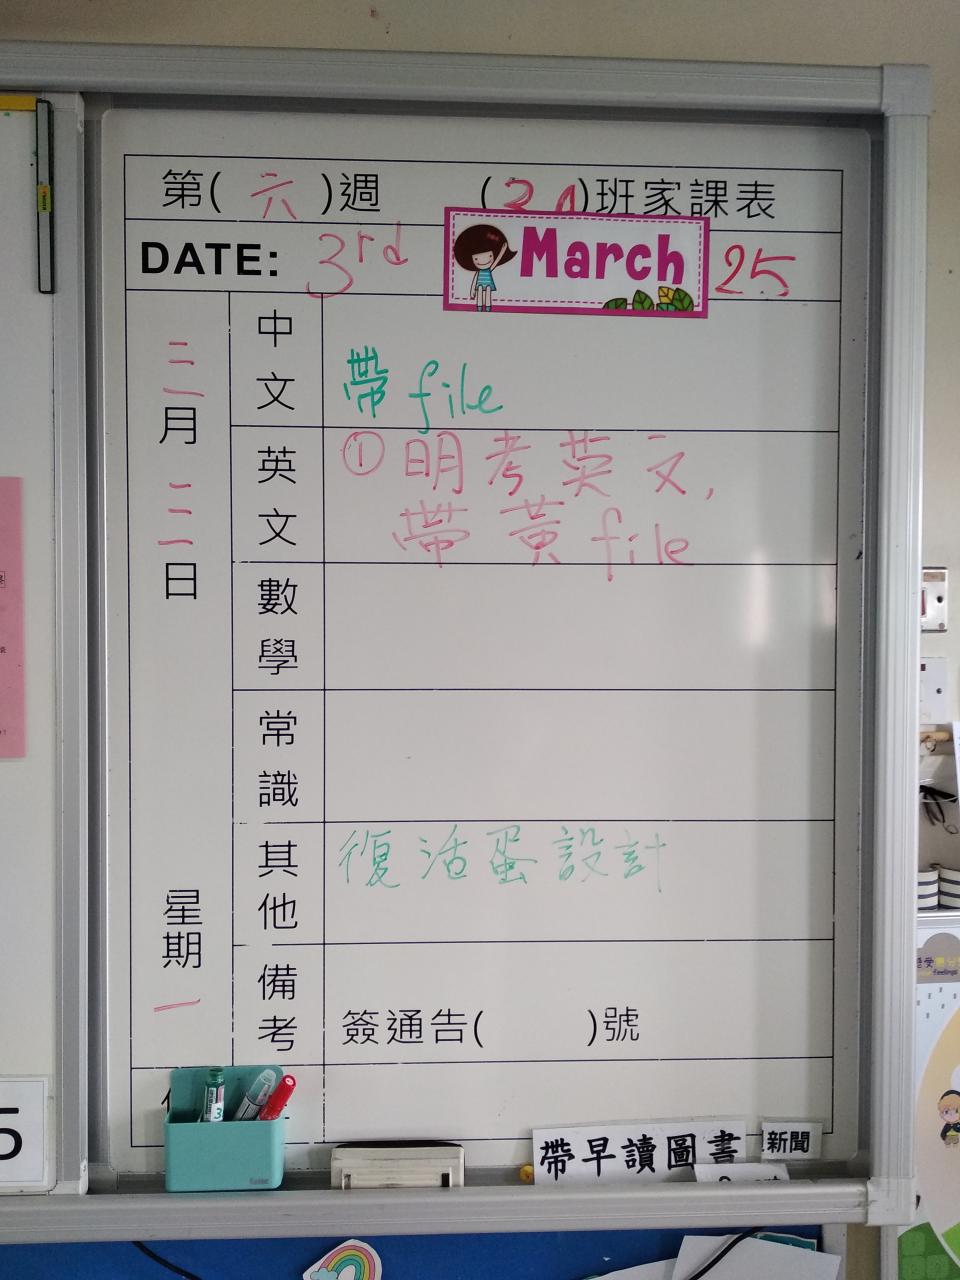 第( 六 )週 ( 3A )班家課表
DATE: 3rd March 25
三月三日
星期一
中文
帶 file
英文
① 明考英文,
帶黃 file
數學
常識
其他
復活蛋設計
備考
簽通告( )號
帶早讀圖書
新聞
5
3